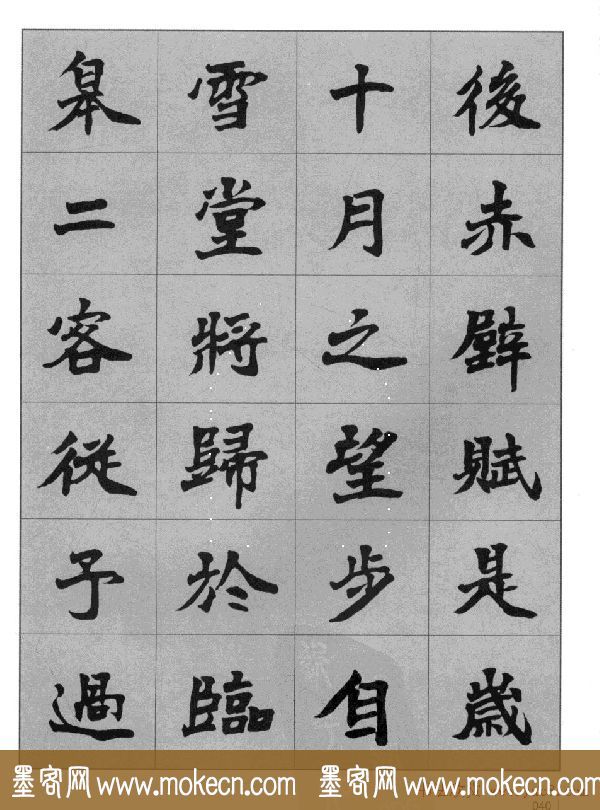 後赤壁賦是歲
十月之望步自
雪堂將歸於臨
皋二客從予過
墨客网 www.mokecn.com 墨客网 www.mokecn.com
040